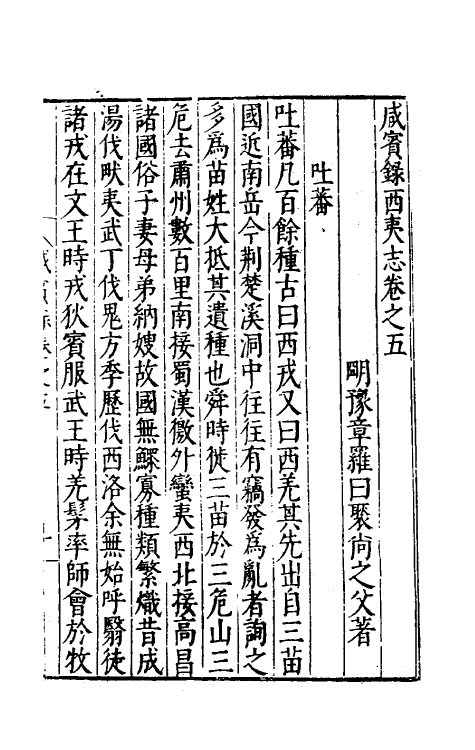 咸賓錄西夷志卷之五
明豫章羅曰褧尚之父著
吐蕃
吐蕃凡百餘種古曰西戎又曰西羌其先出自三苗
國近南岳今荆楚溪洞中往往有竊發為亂者詢之
多爲苗姓大抵其遺種也舜時徙三苗於三危山三
危去肅州數百里南接蜀漢徼外蠻夷西北接高昌
諸國俗子妻母弟納嫂故國無鰥寡種類繁熾昔成
湯伐畎夷武丁伐鬼方季歷伐西洛余無始呼翳徒
諸戎在文王時戎狄賓服武王時羌髳率師會於牧